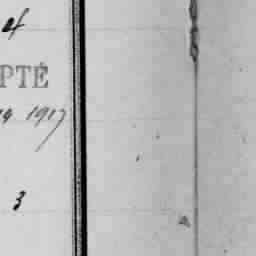 PTÉ
19 1917
3